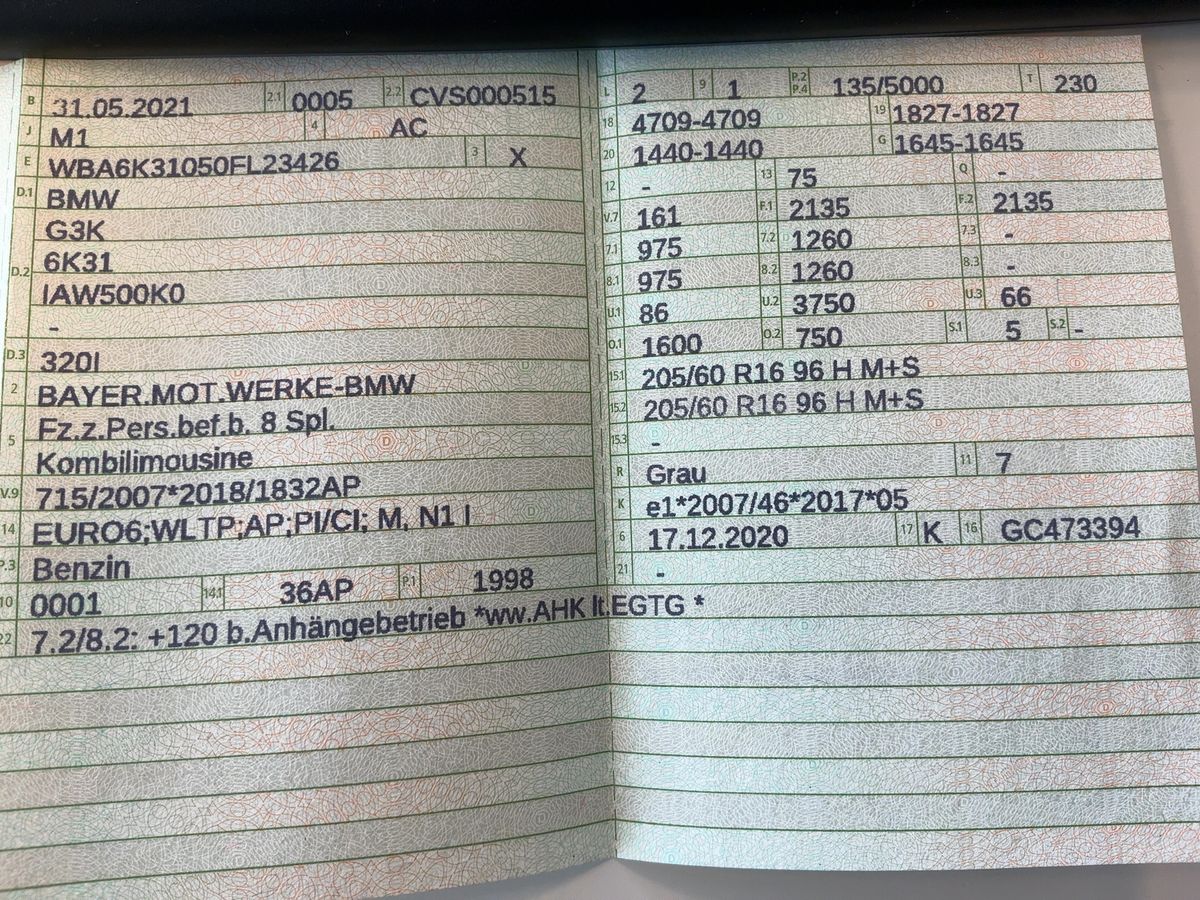 B 31.05.2021 2.1 0005 2.2 CVS000515
J M1 4 AC
E WBA6K31050FL23426 3 X
D.1 BMW
G3K
D.2 6K31
IAW500K0
-
D.3 320I
2 BAYER.MOT.WERKE-BMW
5 Fz.z.Pers.bef.b. 8 Spl.
Kombilimousine
V.9 715/2007*2018/1832AP
14 EURO6;WLTP;AP;PI/CI; M, N1 I
P.3 Benzin
10 0001 14.1 36AP P.1 1998
22 7.2/8.2: +120 b.Anhängebetrieb *ww.AHK lt.EGTG *
L 2 9 1 P.2 P.4 135/5000 T 230
18 4709-4709 19 1827-1827
20 1440-1440 G 1645-1645
12 - 13 75 Q -
V.7 161 F.1 2135 F.2 2135
7.1 975 7.2 1260 7.3 -
8.1 975 8.2 1260 8.3 -
U.1 86 U.2 3750 U.3 66
O.1 1600 O.2 750 S.1 5 S.2 -
15.1 205/60 R16 96 H M+S
15.2 205/60 R16 96 H M+S
15.3 -
R Grau 11 7
K e1*2007/46*2017*05
6 17.12.2020 17 K 16 GC473394
21 -